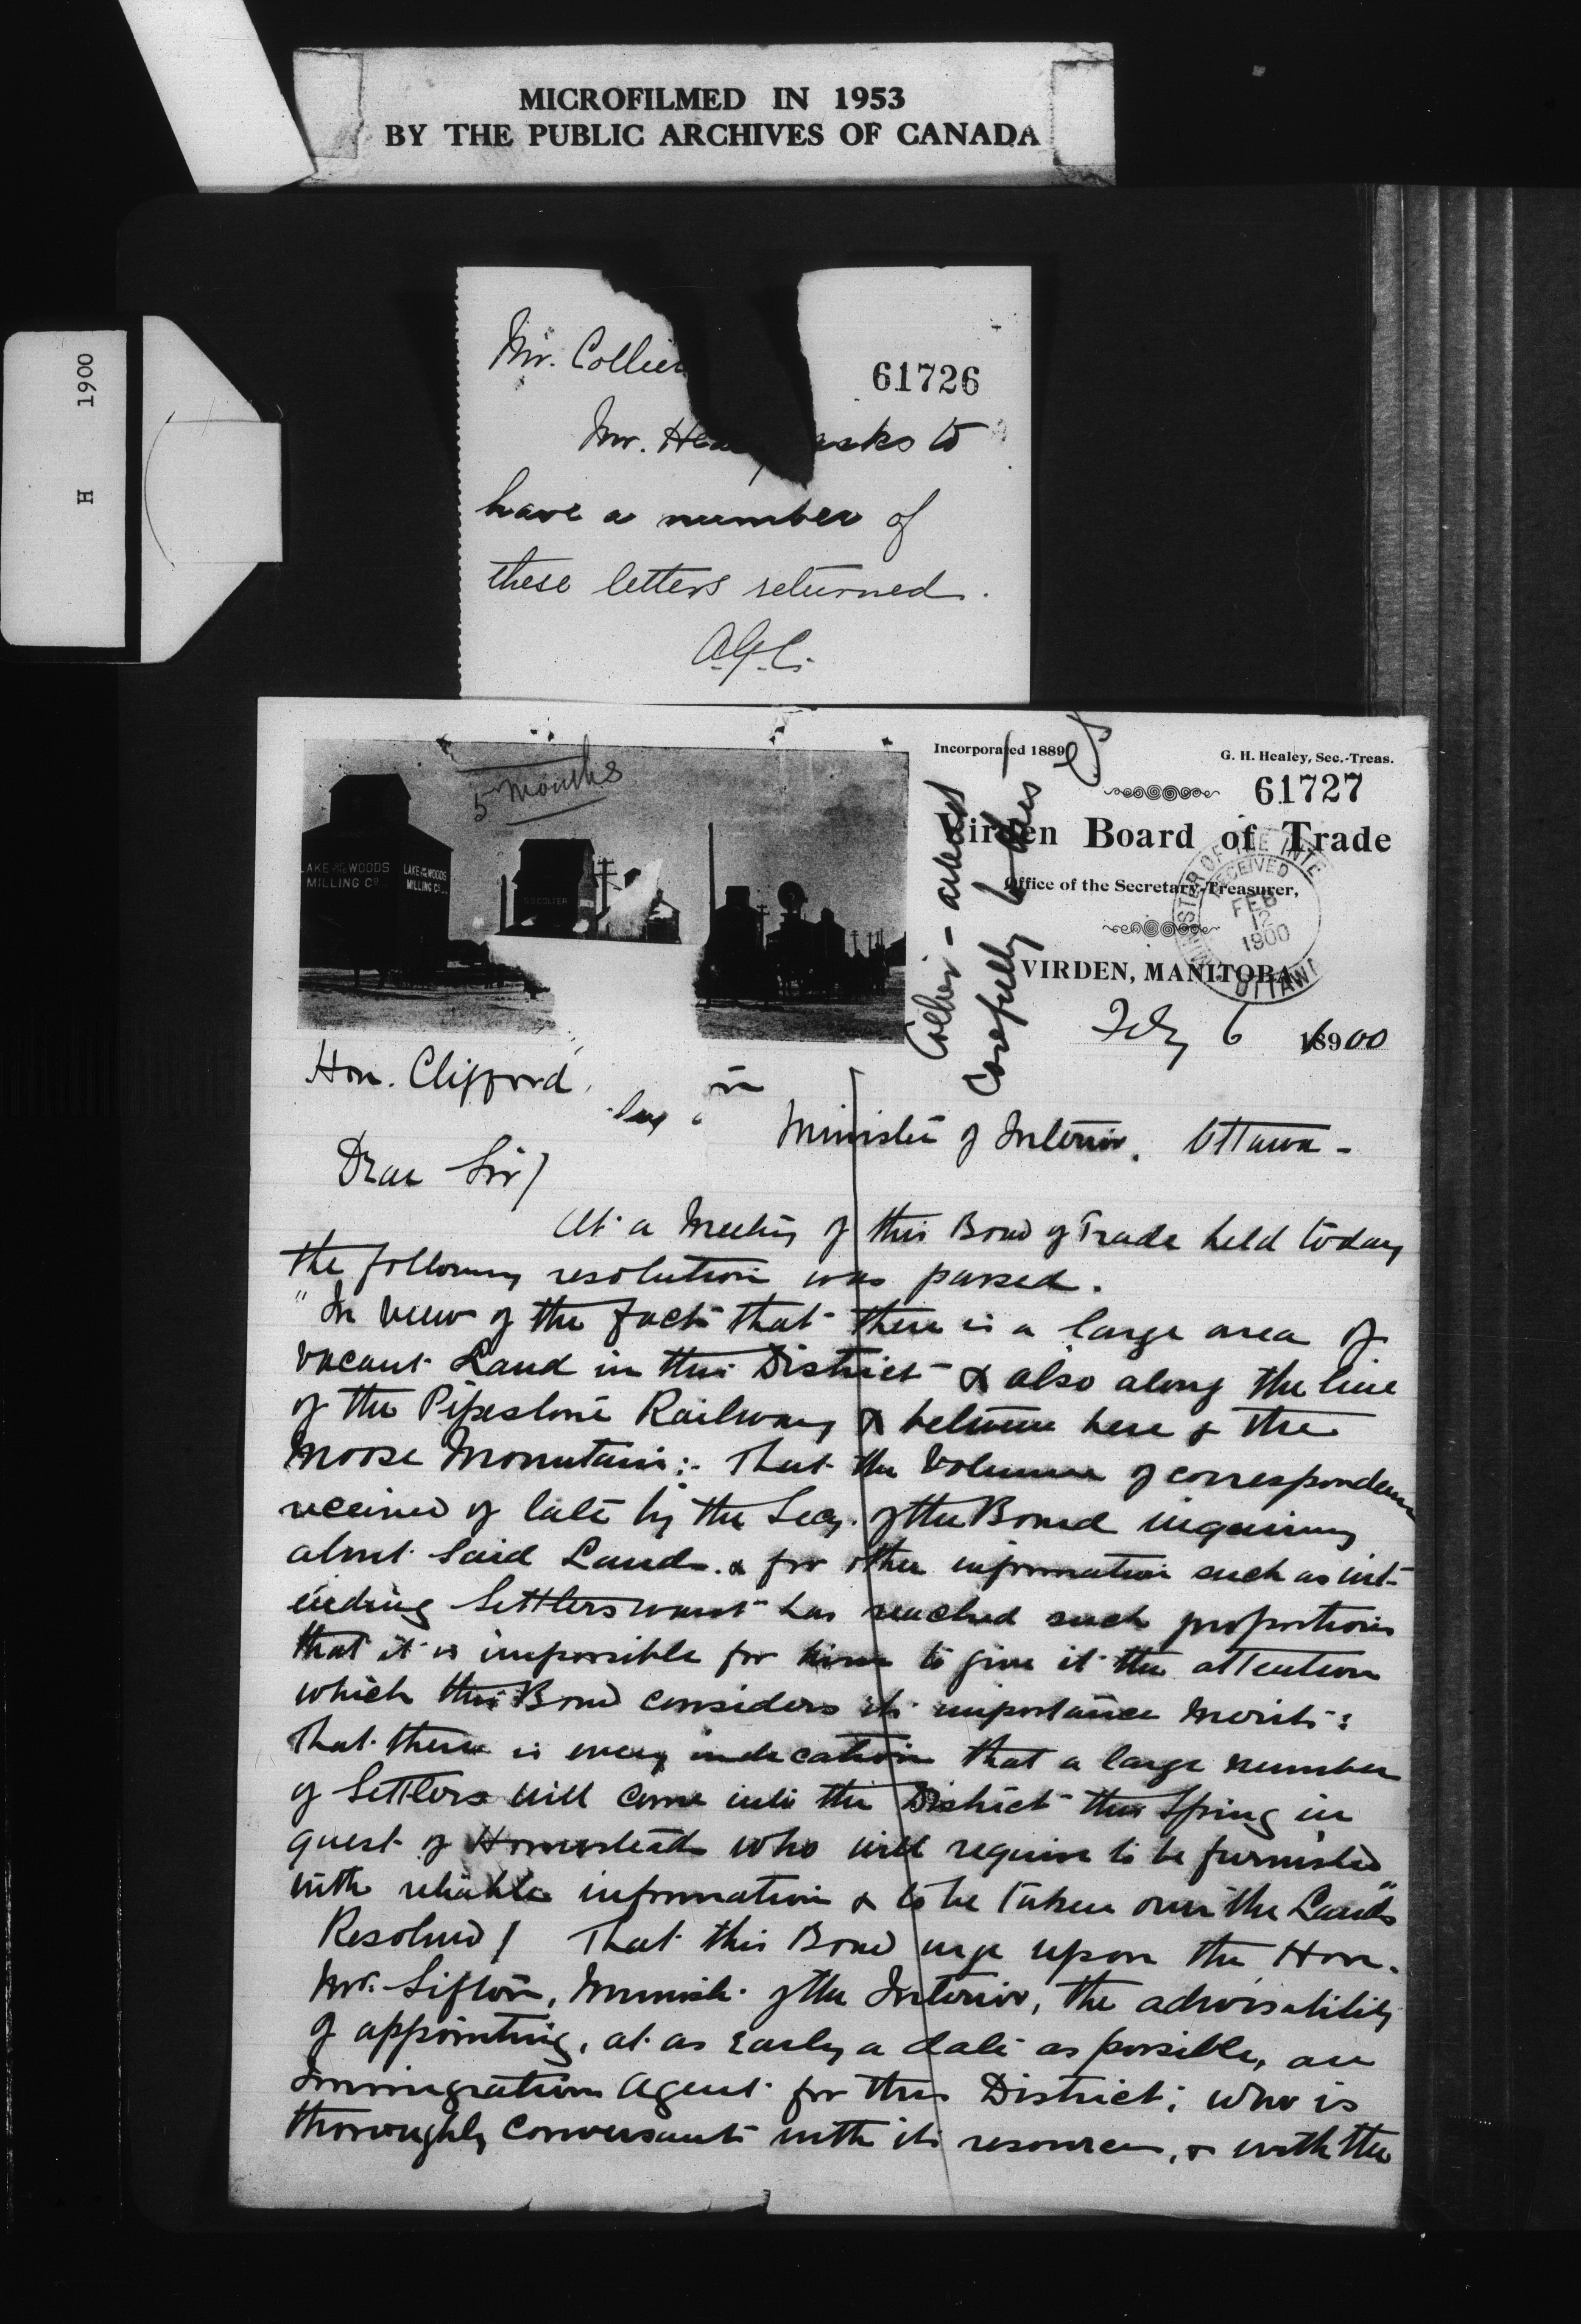 MICROFILMED IN 1953
BY THE PUBLIC ARCHIVES OF CANADA
H 1900
Mr. Collier
61726
Mr. Hea asks to
have a number of
these letters returned.
5 months
LAKE OF THE WOODS
MILLING CO
LAKE OF THE WOODS
MILLING CO
Incorporated 1889
G. H. Healey, Sec.-Treas.
61727
Virden Board of Trade
Office of the Secretary-Treasurer,
MINISTER OF THE INTE
RECEIVED
FEB
12
1900
OTTAWA
VIRDEN, MANITOBA
Collier
Carefully
Feby 6 1900
Hon. Clifford
Minister of Interior. Ottawa -
Dear Sir/
At a Meeting of this Board of Trade held today
the following resolution was passed.
"In view of the fact that there is a large area of
vacant Land in this District & also along the line
of the Pipestone Railway & between here & the
Moose Mountain:- That the Volume of correspondence
received of late by the Secy. of the Board inquiring
about said Land & for other information such as int-
ending Settlers want has reached such proportions
that it is impossible for him to give it the attention
which this Board considers its importance merits:
That there is every indication that a large number
of Settlers will come into this District this Spring in
quest of Homesteads who will require to be furnished
with reliable information & to be taken over the Lands"
Resolved/ That this Board urge upon the Hon.
Mr. Sifton, Minister of the Interior, the advisability
of appointing, at as early a date as possible, an
Immigration Agent for this District; who is
thoroughly conversant with its resources, & with the